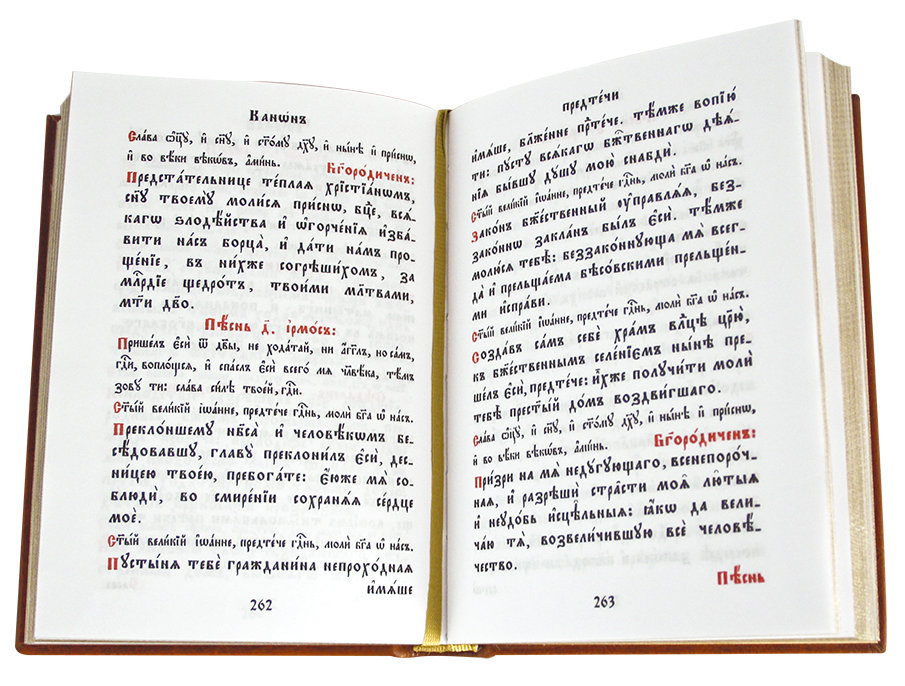 Канѡ́нъ
Сла́ва ѻ҆ц҃ꙋ̀, и҆ сн҃ꙋ, и҆ ст҃о́мꙋ дх҃ꙋ, и҆ ны́нѣ и҆ при́снѡ,
и҆ во вѣ́ки вѣкѡ́въ, а҆ми́нь. Бг҃оро́диченъ:
Предста́тельнице те́плая хрⷭ҇тїа́нѡмъ,
сн҃ꙋ твоемꙋ̀ моли́сѧ при́снѡ, бц҃е, всѧ́-
кагѡ ѕлодѣ́йства и҆ ѡ҆горче́нїѧ и҆зба́-
вити на́съ борца̀, и҆ да́ти на́мъ про-
ще́нїе, въ ни́хже согрѣши́хомъ, за
млⷭ҇рдїе щедро́тъ, твои́ми мл҃твами,
мт҃и дв҃о.
Пѣ́снь д҃. і҆рмо́съ:
Прише́лъ є҆сѝ ѿ дв҃ы, не хода́тай, ни а҆́гг҃лъ, но са́мъ,
гдⷭ҇и, вопло́щсѧ, и҆ спа́слъ є҆сѝ всего́ мѧ чл҃вѣ́ка, тѣ́мъ
зовꙋ́ ти: сла́ва си́лѣ твое́й, гдⷭ҇и.
Ст҃ы́й вели́кїй і҆ѡа́нне, предте́че гдⷭ҇нь, молѝ бг҃а ѡ҆ на́съ.
Прекло́ншемꙋ нб҃са̀ и҆ человѣ́кѡмъ бе-
сѣ́довавшꙋ, главꙋ̀ преклони́лъ є҆сѝ, дес-
ни́цею твое́ю, пребога́те: є҆́юже мѧ̀ со-
блюдѝ, во смире́нїи сохранѧ́ѧ се́рдце
моѐ.
Ст҃ы́й вели́кїй і҆ѡа́нне, предте́че гдⷭ҇нь, молѝ бг҃а ѡ҆ на́съ.
Пꙋсты́нѧ тебѐ граждани́на непрохо́днаѧ
и҆мѧ́ше
262
предте́чи
и҆мѧ́ше, бл҃же́нне прⷣте́че. тѣ́мже вопїю́
ти: пꙋ́стꙋ всѧ́кагѡ бж҃твеннагѡ дѣѧ́-
нїѧ бы́вшꙋ дꙋ́шꙋ мою̀ снабдѝ.
Ст҃ы́й вели́кїй і҆ѡа́нне, предте́че гдⷭ҇нь, молѝ бг҃а ѡ҆ на́съ.
Зако́нъ бж҃е́ственный ᲂу҆правлѧ́ѧ, без-
зако́ннѡ закла́нъ бы́лъ є҆сѝ. тѣ́мже
молю́сѧ тебѣ̀: беззако́ннꙋюща мѧ̀ всег-
да̀ и҆ прельща́ема бѣсо́вскими прельще́нь-
ми и҆спра́ви.
Ст҃ы́й вели́кїй і҆ѡа́нне, предте́че гдⷭ҇нь, молѝ бг҃а ѡ҆ на́съ.
Созда́въ са́мъ себѐ хра́мъ влⷣце цр҃ю̀,
къ бж҃е́ственнымъ селе́нїємъ ны́нѣ пре-
ше́лъ є҆сѝ, предте́че: и҆́хже полꙋчи́ти молѝ
тебѣ̀ прест҃ы́й до́мъ воздви́гшаго.
Сла́ва ѻ҆ц҃ꙋ̀, и҆ сн҃ꙋ, и҆ ст҃о́мꙋ дх҃ꙋ, и҆ ны́нѣ и҆ при́снѡ,
и҆ во вѣ́ки вѣкѡ́въ, а҆ми́нь. Бг҃оро́диченъ:
При́зри на мѧ̀ недꙋ́гꙋющаго, всенепоро́ч-
наѧ, и҆ разрѣшѝ стра́сти моѧ̑ лю̑тыѧ
и҆ неꙋдо́бь и҆сцѣ́льныѧ: ꙗ҆́кѡ да вели-
ча́ю тѧ̀, возвели́чившꙋю всѐ человѣ́-
чество.
Пѣ́снь
263